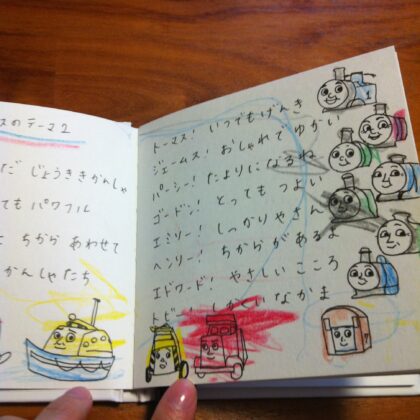 スのテーマ2
だ じょうききかんしゃ
てもパワフル
ちから あわせて
かんしゃたち
トーマス! いつでもげんき
ジェームス! おしゃれで ゆかい
パーシー! たよりになるね
ゴードン! とっても つよい
エミリー! しっかりやさん
ヘンリー! ちからがあるよ
エドワード! やさしい こころ
トビー! しかくい なかま
1